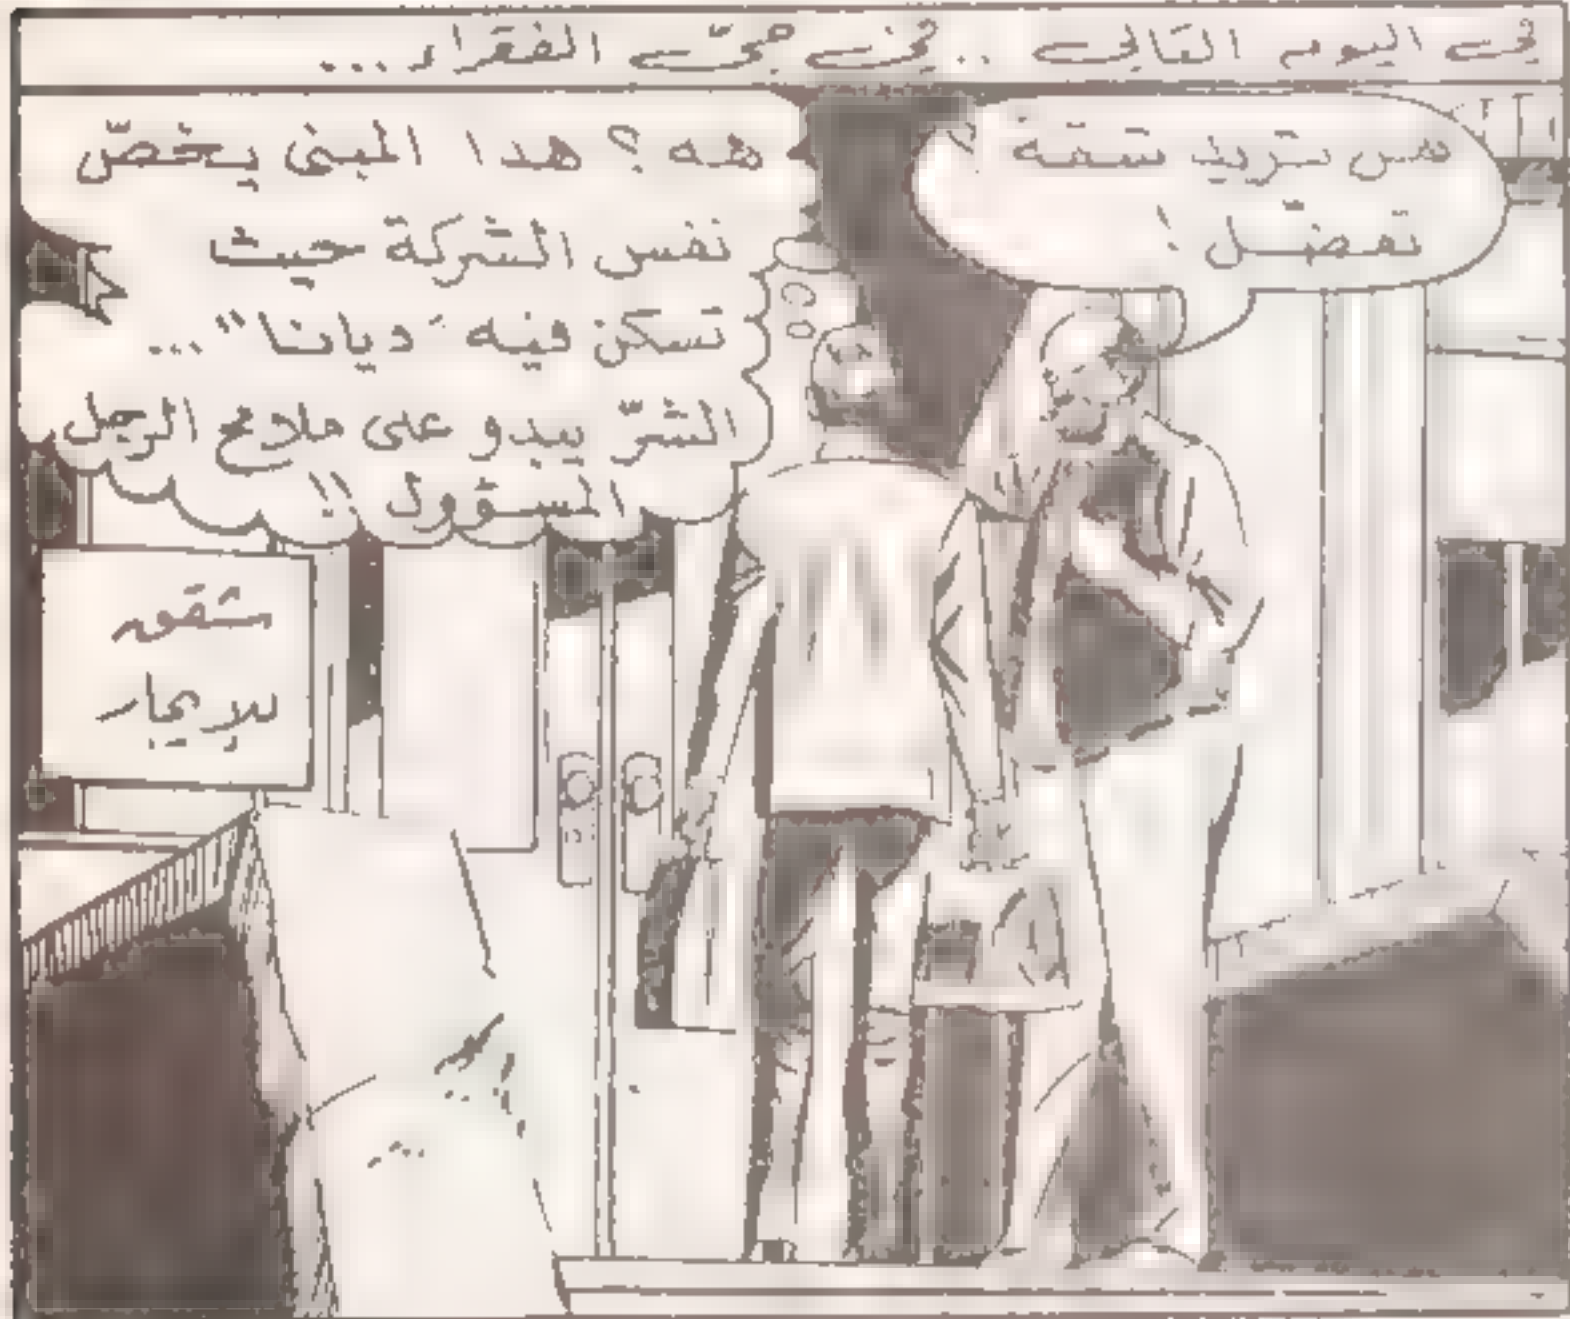 في اليوم التالي .. في حيّ الفقراء...
هل تريد شقة
تفضّل !
هه ؟ هذا المبنى يخصّ
نفس الشركة حيث
تسكن فيه "ديانا"...
الشرّ يبدو على ملامح الرجل
المسؤول !!
شقق
للإيجار